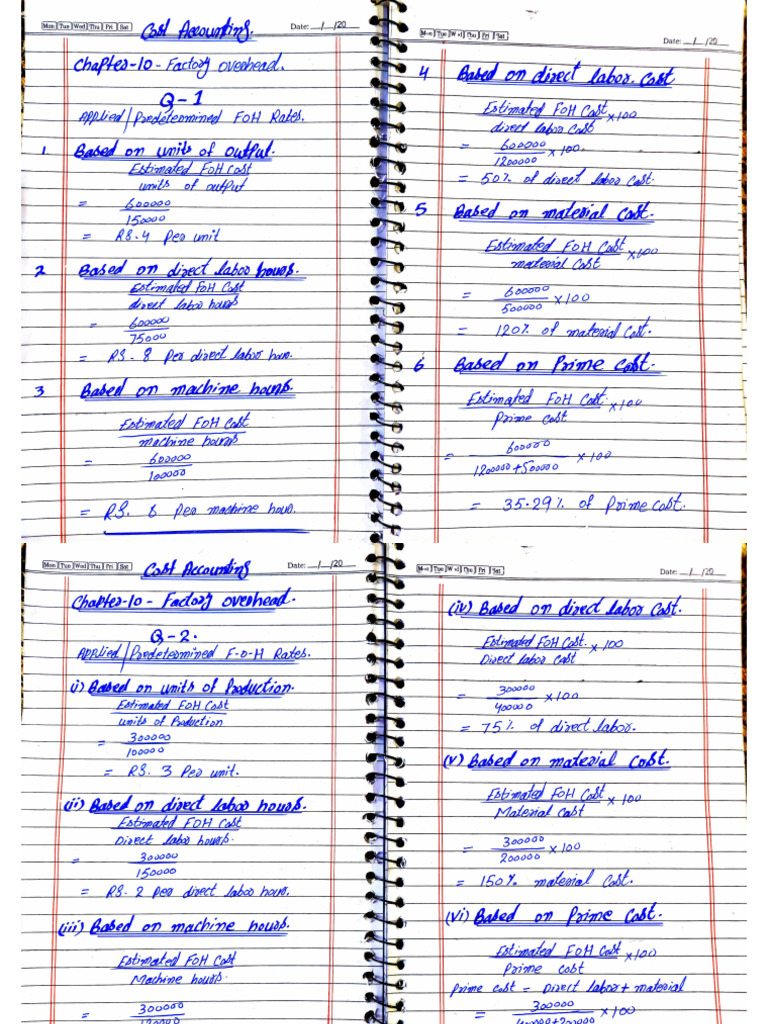 Mon Tue Wed Thu Fri Sat
Date: __/__/20__
Cost Accounting.
Chapter-10 - Factory overhead.
Q-1
Applied/Predetermined FOH Rates.
1 Based on units of output.
Estimated FOH Cost
units of output
= 600000
150000
= RS. 4 Per unit
2 Based on direct labor hours.
Estimated FOH Cost
direct labor hours
= 600000
75000
= RS - 8 Per direct labor hour.
3 Based on machine hours.
Estimated FOH Cost
machine hours
= 600000
100000
= RS. 6 Per machine hour.
Mon Tue Wed Thu Fri Sat
Date: __/__/20__
4 Based on direct labor cost
Estimated FOH Cost x100
direct labor cost
= 600000 x 100.
1200000
= 50% of direct labor cost.
5 Based on material cost.
Estimated FOH Cost x100
material Cost
= 600000 x100
500000
= 120% of material Cost.
6 Based on Prime Cost.
Estimated FOH Cost. x100
Prime Cost
= 600000 x100
1200000+500000
= 35.29% of Prime Cost.
Mon Tue Wed Thu Fri Sat
Date: __/__/20__
Cost Accounting
Chapter-10 - Factory overhead.
Q-2.
Applied/Predetermined F-O-H Rates.
(i) Based on units of Production.
Estimated FOH Cost
units of Production
= 300000
100000
= RS. 3 Per unit.
(ii) Based on direct labor hours.
Estimated FOH Cost
Direct labor hours.
= 300000
150000
= RS. 2 per direct labor hour.
(iii) Based on machine hours.
Estimated FOH Cost
Machine hours.
= 300000
Mon Tue Wed Thu Fri Sat
Date: __/__/20__
(iv) Based on direct labor Cost.
Estimated FOH Cost. x 100
Direct labor Cost
= 300000 x100
400000
= 75% of direct labor.
(v) Based on material Cost.
Estimated FOH Cost x 100
Material Cost
= 300000 x 100
200000
= 150% material Cost.
(vi) Based on Prime Cost.
Estimated FOH Cost x100
Prime cost
Prime cost = Direct labor + material
= 300000 x 100